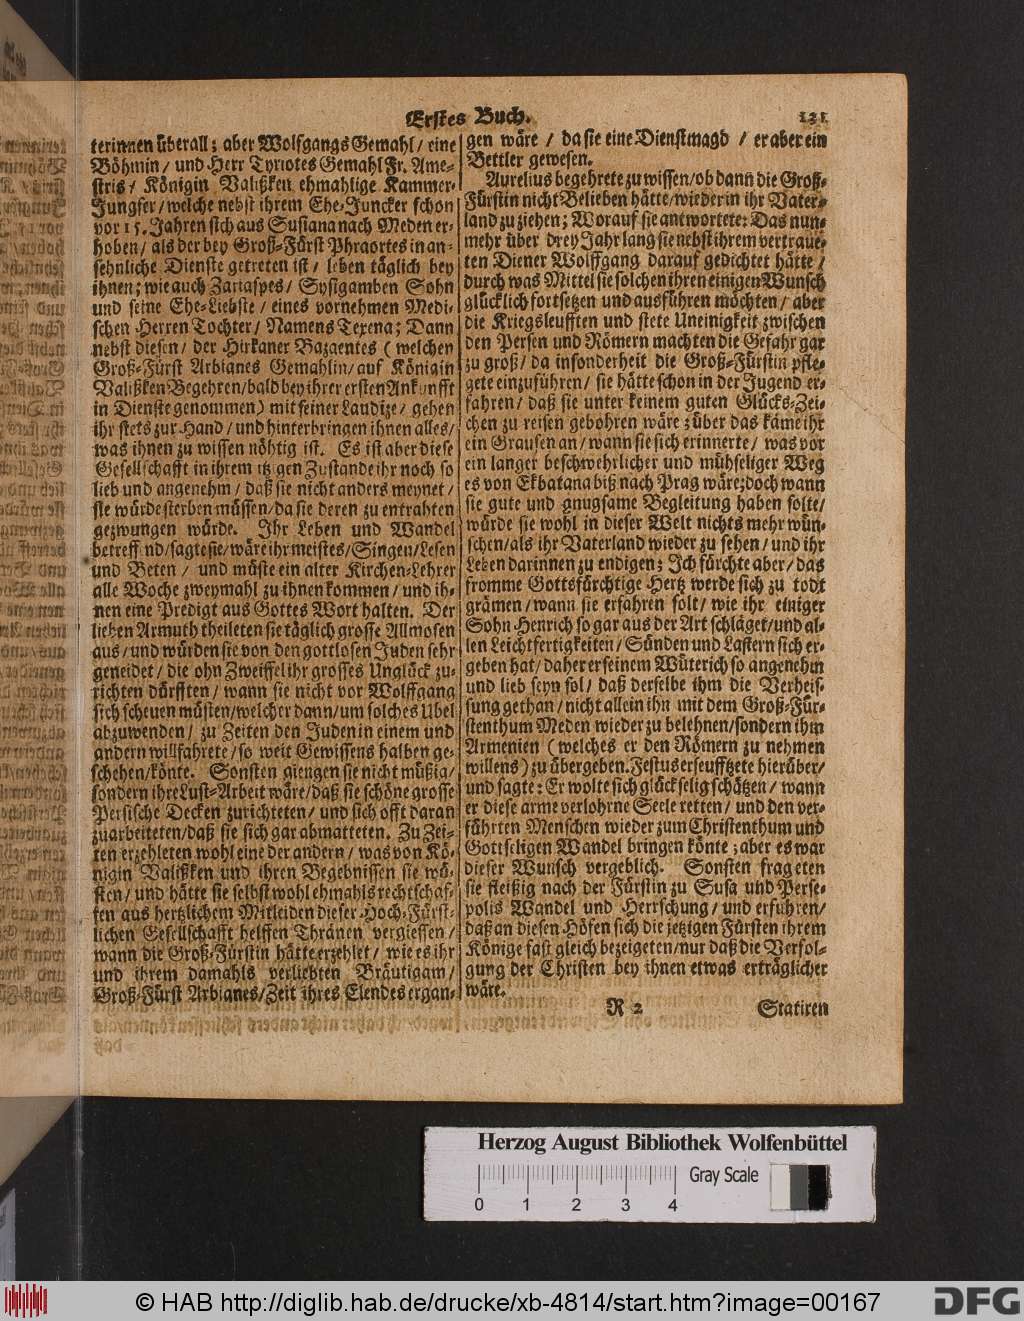 Erstes Buch. 131
terinnen überall; aber Wolfgangs Gemahl / eine
Böhmin / und Herr Tyriotes Gemahl Fr. Ame-
stris / Königin Valißken ehmahlige Kammer-
Jungfer / welche nebst ihrem Ehe-Juncker schon
vor 15. Jahren sich aus Susiana nach Meden er-
hoben / als der bey Groß-Fürst Phraortes in an-
sehnliche Dienste getreten ist / leben täglich bey
ihnen; wie auch Zariaspes / Sysigamben Sohn
und seine Ehe-Liebste / eines vornehmen Medi-
schen Herren Tochter / Namens Texena; Dann
nebst diesen / der Hirkaner Bazaentes ( welchen
Groß-Fürst Arbianes Gemahlin / auf Königin
Valißken Begehren / bald bey ihrer ersten Ankunfft
in Dienste genommen) mit seiner Laudize / gehen
ihr stets zur Hand / und hinterbringen ihnen alles /
was ihnen zu wissen nöhtig ist. Es ist aber diese
Gesellschafft in ihrem itzigen Zustande ihr noch so
lieb und angenehm / daß sie nicht anders meynet /
sie würde sterben müssen / da sie deren zu entrahten
gezwungen würde. Ihr Leben und Wandel
betreffend / sagte sie / wäre ihr meistes / Singen / Lesen
und Beten / und müste ein alter Kirchen-Lehrer
alle Woche zweymahl zu ihnen kommen / und ih-
nen eine Predigt aus Gottes Wort halten. Der
lieben Armuth theileten sie täglich grosse Allmosen
aus / und würden sie von den gottlosen Juden sehr
geneidet / die ohn Zweiffel ihr grosses Unglück zu-
richten dürfften / wann sie nicht vor Wolffgang
sich scheuen müsten / welcher dann / um solches Ubel
abzuwenden / zu Zeiten den Juden in einem und
andern willfahrete / so weit Gewissens halben ge-
schehen / könte. Sonsten giengen sie nicht müßig /
sondern ihre Lust-Arbeit wäre / daß sie schöne grosse
Persische Decken zurichteten / und sich offt daran
zuarbeiteten / daß sie sich gar abmatteten. Zu Zei-
ten erzehleten wohl eine der andern / was von Kö-
nigin Valißken und ihren Begebnissen sie wü-
sten / und hätte sie selbst wohl ehmahls rechtschaf-
fen aus hertzlichem Mitleiden dieser Hoch-Fürst-
lichen Gesellschafft helffen Thränen vergiessen /
wann die Groß-Fürstin hätte erzehlet / wie es ihr
und ihrem damahls verliebten Bräutigam /
Groß-Fürst Arbianes / Zeit ihres Elendes ergan-
gen wäre / da sie eine Dienstmagd / er aber ein
Bettler gewesen.
Aurelius begehrete zu wissen / ob dann die Groß-
Fürstin nicht Belieben hätte / wieder in ihr Vater-
land zu ziehen; Worauf sie antwortete: Das nun-
mehr über drey Jahr lang sie nebst ihrem vertraue-
ten Diener Wolffgang darauf gedichtet hätte /
durch was Mittel sie solchen ihren einigen Wunsch
glücklich fortsetzen und ausführen möchten / aber
die Kriegsleufften und stete Uneinigkeit zwischen
den Persen und Römern machten die Gefahr gar
zu groß / da insonderheit die Groß-Fürstin pfle-
gete einzuführen / sie hätte schon in der Jugend er-
fahren / daß sie unter keinem guten Glücks-Zei-
chen zu reisen gebohren wäre; über das käme ihr
ein Grausen an / wann sie sich erinnerte / was vor
ein langer beschwehrlicher und mühseliger Weg
es von Ekbatana biß nach Prag wäre; doch wann
sie gute und gnugsame Begleitung haben solte /
würde sie wohl in dieser Welt nichts mehr wün-
schen / als ihr Vaterland wieder zu sehen / und ihr
Leben darinnen zu endigen; Ich fürchte aber / das
fromme Gottsfürchtige Hertz werde sich zu todt
grämen / wann sie erfahren solt / wie ihr einiger
Sohn Henrich so gar aus der Art schläget / und al-
len Leichtfertigkeiten / Sünden und Lastern sich er-
geben hat / daher er seinem Wüterich so angenehm
und lieb seyn sol / daß derselbe ihm die Verheis-
sung gethan / nicht allein ihn mit dem Groß-Für-
stenthum Meden wieder zu belehnen / sondern ihm
Armenien ( welches er den Römern zu nehmen
willens ) zu übergeben. Festus erseufftzete hierüber /
und sagte: Er wolte sich glückselig schätzen / wann
er diese arme verlohrne Seele retten / und den ver-
führten Menschen wieder zum Christenthum und
Gottseligen Wandel bringen könte; aber es war
dieser Wunsch vergeblich. Sonsten frageten
sie fleißig nach der Fürstin zu Susa und Perse-
polis Wandel und Herrschung / und erfuhren /
daß an diesen Höfen sich die jetzigen Fürsten ihrem
Könige fast gleich bezeigeten / nur daß die Verfol-
gung der Christen bey ihnen etwas erträglicher
wäre.
R 2 Statiren
Herzog August Bibliothek Wolfenbüttel
Gray Scale
0 1 2 3 4
© HAB http://diglib.hab.de/drucke/xb-4814/start.htm?image=00167
DFG